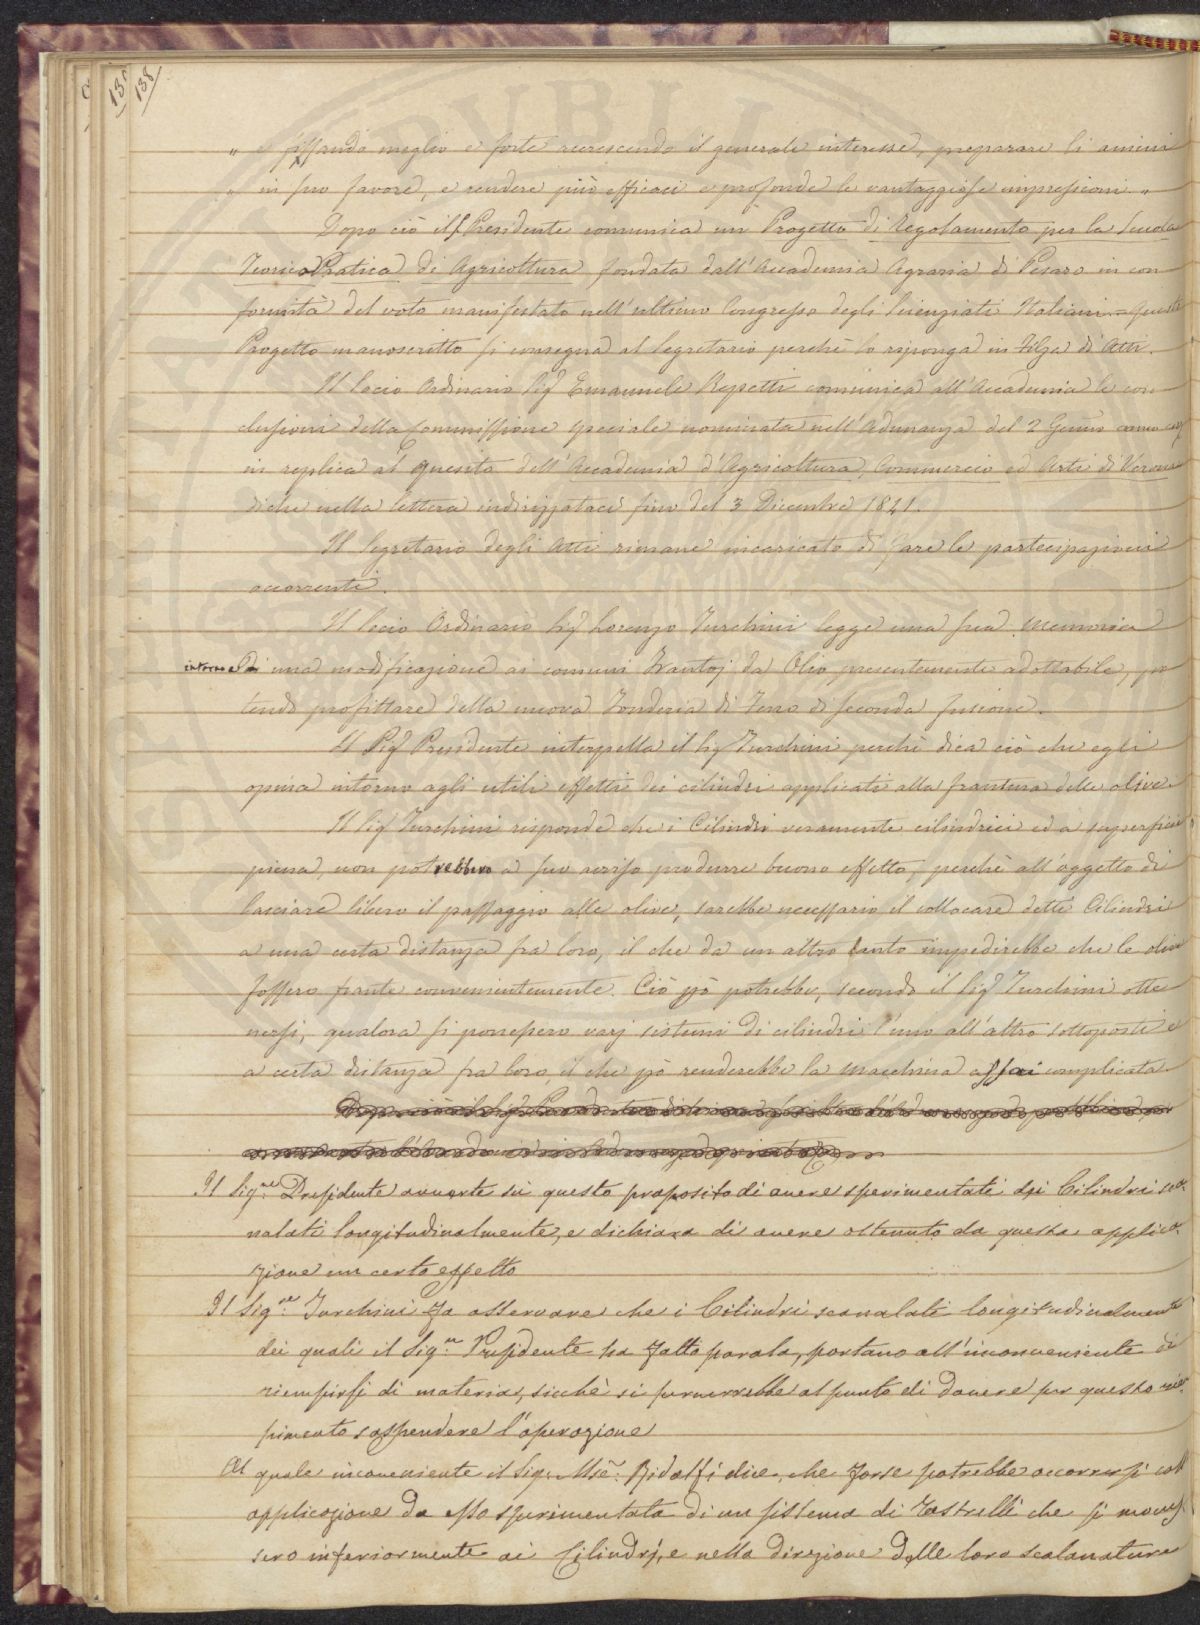 138
„ e fissando meglio e forte accrescendo il generale interesse, preparare li animi
„ in suo favore, e rendere più efficaci e profonde le vantaggiose impressioni „
Dopo ciò il Presidente comunica un Progetto di Regolamento per la Scuola
Teorico Pratica di Agricoltura, fondata dall'Accademia Agraria di Pesaro in con
formità del voto manifestato nell'ultimo Congresso degli Scienziati Italiani = Questo
Progetto manoscritto si consegna al Segretario perchè lo riponga in Filza di Atti.
Il Socio Ordinario Sig.r Emanuele Repetti comunica all'Accademia le con
clusioni della Commissione speciale nominata nell'Adunanza del 2 Genn.o anno
in replica al quesito dell'Accademia d'Agricoltura, Commercio ed Arti di Verona
di che nella lettera indirizzataci fino del 3 Dicembre 1841.
Il Segretario degli Atti rimane incaricato di fare le partecipazioni
occorrenti.
Il Socio Ordinario Sig.r Lorenzo Turchini legge una sua memoria
intorno ad una modificazione ai comuni Frantoj da Olio presentemente adottabile, po
tendo profittare della nuova Fonderia di Ferro di seconda fusione.
Il Sig.r Presidente interpella il Sig.r Turchini perchè dica ciò che egli
opina intorno agli utili effetti dei cilindri applicati alla frantura delle olive.
Il Sig.r Turchini risponde che i Cilindri veramente cilindrici ed a superficie
piena, non potrebbero a suo avviso produrre buono effetto, perchè all'oggetto di
lasciare libero il passaggio alle olive, sarebbe necessario il collocare detti Cilindri
a una certa distanza fra loro, il che da un altro canto impedirebbe che le olive
fossero frante convenientemente. Ciò però potrebbe, secondo il Sig.r Turchini otte
nersi, qualora si ponessero varj sistemi di cilindri l'uno all'altro sottoposti e
a certa distanza fra loro, il che però renderebbe la macchina assai complicata.
Il Sig.re Presidente avverte su questo proposito di avere sperimentati dei Cilindri sca-
nalati longitudinalmente, e dichiara di avere ottenuto da questa applica-
zione un certo effetto
Il Sig.re Turchini fa osservare che i Cilindri scanalati longitudinalmente
dei quali il Sig.re Presidente ha fatto parola, portano all'inconveniente di
riempirsi di materia, sicchè si perverrebbe al punto di dovere per questo riem-
pimento sospendere l'operazione
Al quale inconveniente il Sig. Mse. Ridolfi dice, che forse potrebbe occorrersi coll'
applicazione da esso sperimentata di un sistema di rastrelli che si moves
sero inferiormente ai Cilindri, e nella direzione delle loro scalanature